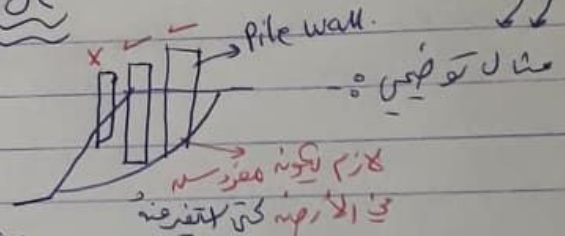 Pile wall.
مثال توضيحي :-
لازم يكونه مغروسه
في الأرضه حتى